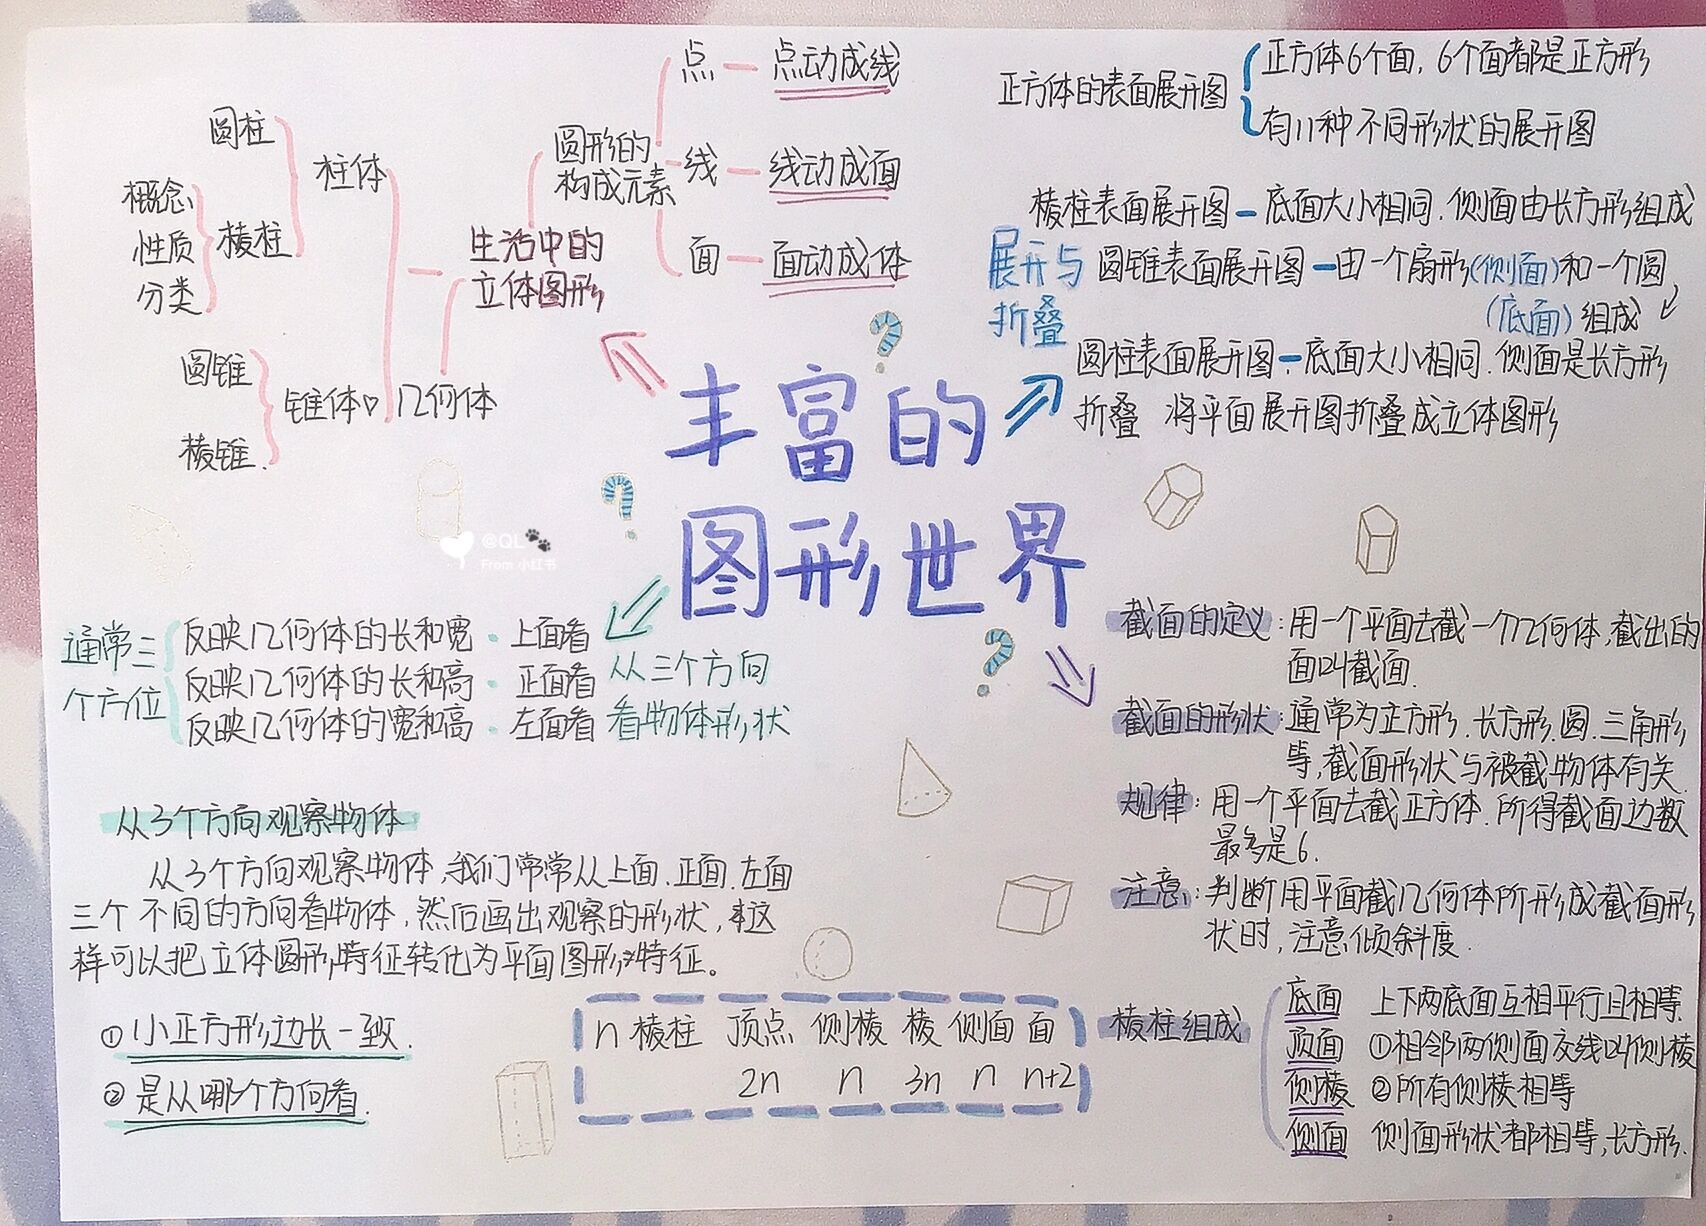 丰富的
图形世界
生活中的
立体图形
圆形的
构成元素
点 点动成线
线 线动成面
面 面动成体
几何体
柱体
圆柱
棱柱
概念
性质
分类
锥体
圆锥
棱锥
展开与
折叠
正方体的表面展开图
正方体6个面，6个面都是正方形
有11种不同形状的展开图
棱柱表面展开图 底面大小相同.侧面由长方形组成
圆锥表面展开图 由一个扇形(侧面)和一个圆
(底面)组成
圆柱表面展开图 底面大小相同.侧面是长方形
折叠 将平面展开图折叠成立体图形
@QL
From 小红书
从三个方向
看物体形状
通常三
个方位
反映几何体的长和宽·上面看
反映几何体的长和高·正面看
反映几何体的宽和高·左面看
从3个方向观察物体
从3个方向观察物体,我们常常从上面.正面.左面
三个不同的方向看物体,然后画出观察的形状,这
样可以把立体圆形特征转化为平面图形特征。
①小正方形边长一致.
②是从哪个方向看.
截面的定义:用一个平面去截一个几何体,截出的
面叫截面.
截面的形状:通常为正方形.长方形.圆.三角形
等,截面形状与被截物体有关.
规律:用一个平面去截正方体.所得截面边数
最多是6.
注意:判断用平面截几何体所形成截面形
状时,注意倾斜度.
n棱柱 顶点 侧棱 棱 侧面 面
2n n 3n n n+2
棱柱组成
底面 上下两底面互相平行且相等.
顶面 ①相邻两侧面交线叫侧棱
侧棱 ②所有侧棱相等
侧面 侧面形状都相等,长方形.